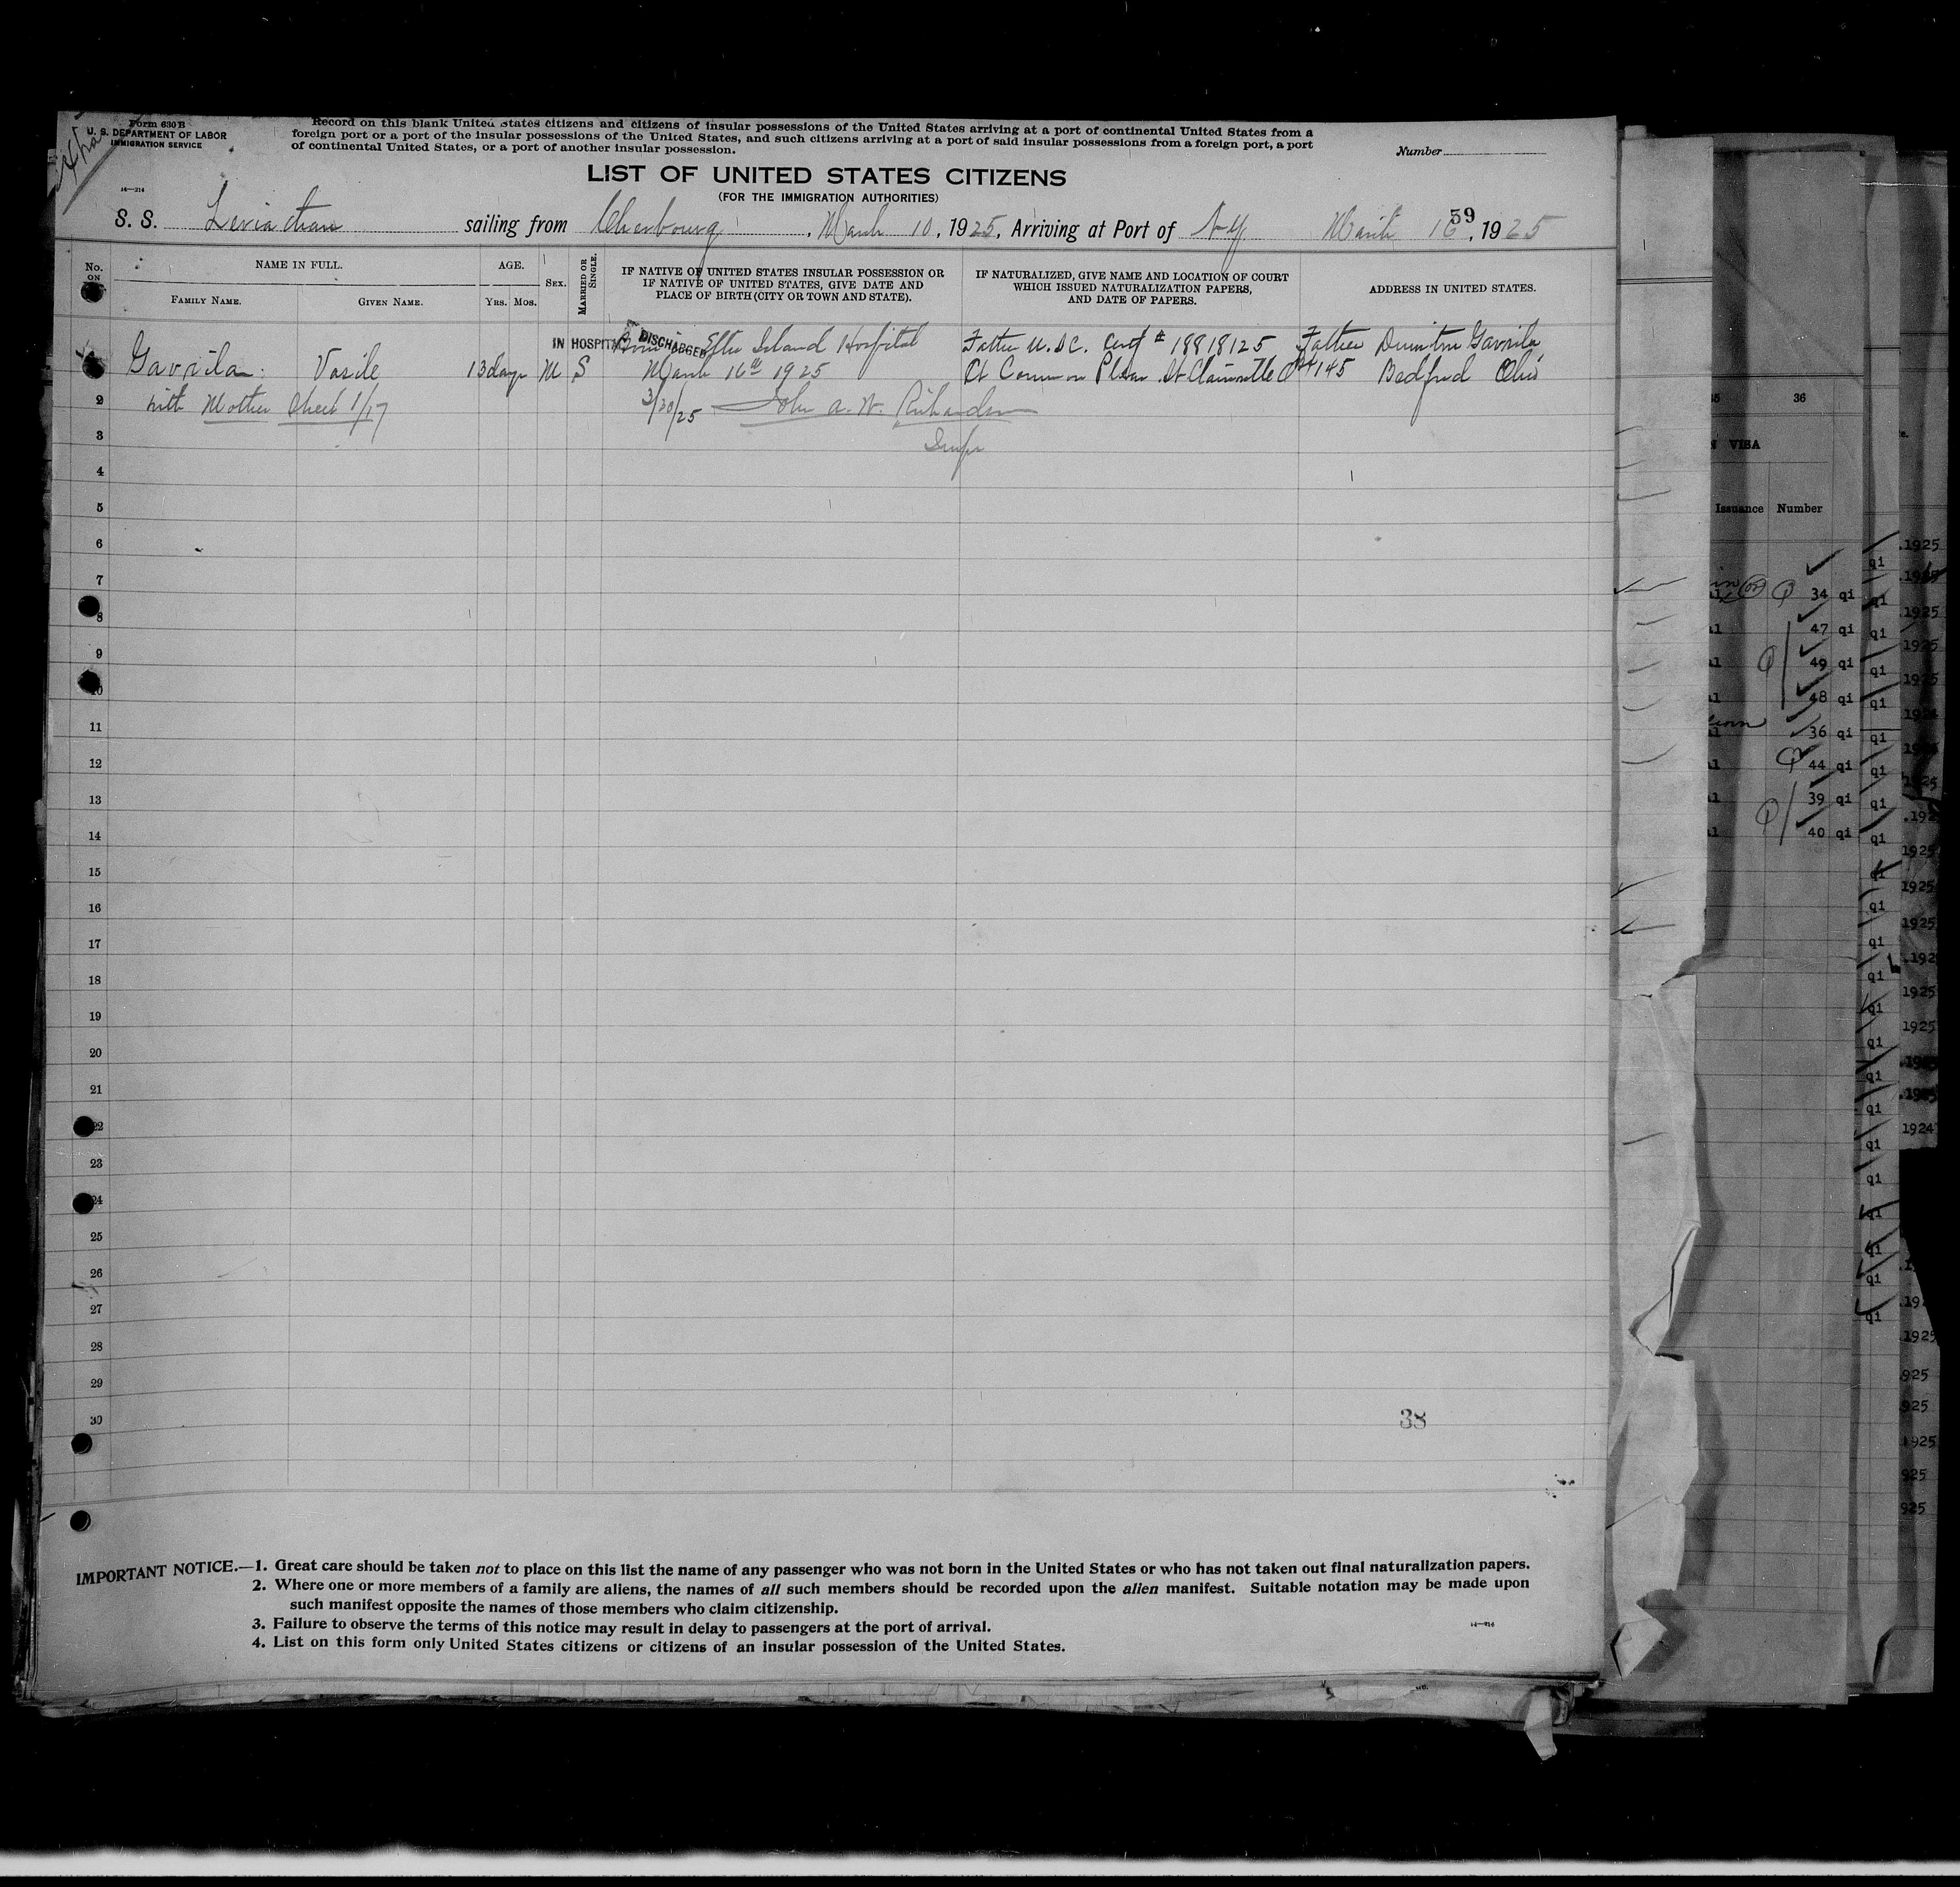 Form 630 B
U. S. DEPARTMENT OF LABOR
IMMIGRATION SERVICE
Record on this blank United States citizens and citizens of insular possessions of the United States arriving at a port of continental United States from a
foreign port or a port of the insular possessions of the United States, and such citizens arriving at a port of said insular possessions from a foreign port, a port
of continental United States, or a port of another insular possession.
Number
14—214
LIST OF UNITED STATES CITIZENS
(FOR THE IMMIGRATION AUTHORITIES)
59
S. S. Leviathan sailing from Cherbourg, March 10, 1925, Arriving at Port of NY March 16, 1925
No. ON
NAME IN FULL.
FAMILY NAME.
GIVEN NAME.
AGE.
YRS. MOS.
SEX.
MARRIED OR SINGLE.
IF NATIVE OF UNITED STATES INSULAR POSSESSION OR
IF NATIVE OF UNITED STATES, GIVE DATE AND
PLACE OF BIRTH (CITY OR TOWN AND STATE).
IF NATURALIZED, GIVE NAME AND LOCATION OF COURT
WHICH ISSUED NATURALIZATION PAPERS,
AND DATE OF PAPERS.
ADDRESS IN UNITED STATES.
IN HOSPITAL DISCHARGED
Born Ellis Island Hospital Father U.S.C. Cert # 18818125 Father Dumitru Gavrila
Gavrila Vasile 13 days M S March 16th 1925 Ct Common Pleas St Clairsville O 145 Bedford Ohio
2 with Mother Sheet 1/17 3/20/25 John A. W. Richardson
3 Inspr
4
5
6
7
8
9
10
11
12
13
14
15
16
17
18
19
20
21
22
23
24
25
26
27
28
29
30
38
IMPORTANT NOTICE.—1. Great care should be taken not to place on this list the name of any passenger who was not born in the United States or who has not taken out final naturalization papers.
2. Where one or more members of a family are aliens, the names of all such members should be recorded upon the alien manifest. Suitable notation may be made upon
such manifest opposite the names of those members who claim citizenship.
3. Failure to observe the terms of this notice may result in delay to passengers at the port of arrival.
4. List on this form only United States citizens or citizens of an insular possession of the United States.
14—214
36
VISA
Issuance Number
34 qi
47 qi
49 qi
48 qi
36 qi
44 qi
39 qi
40 qi